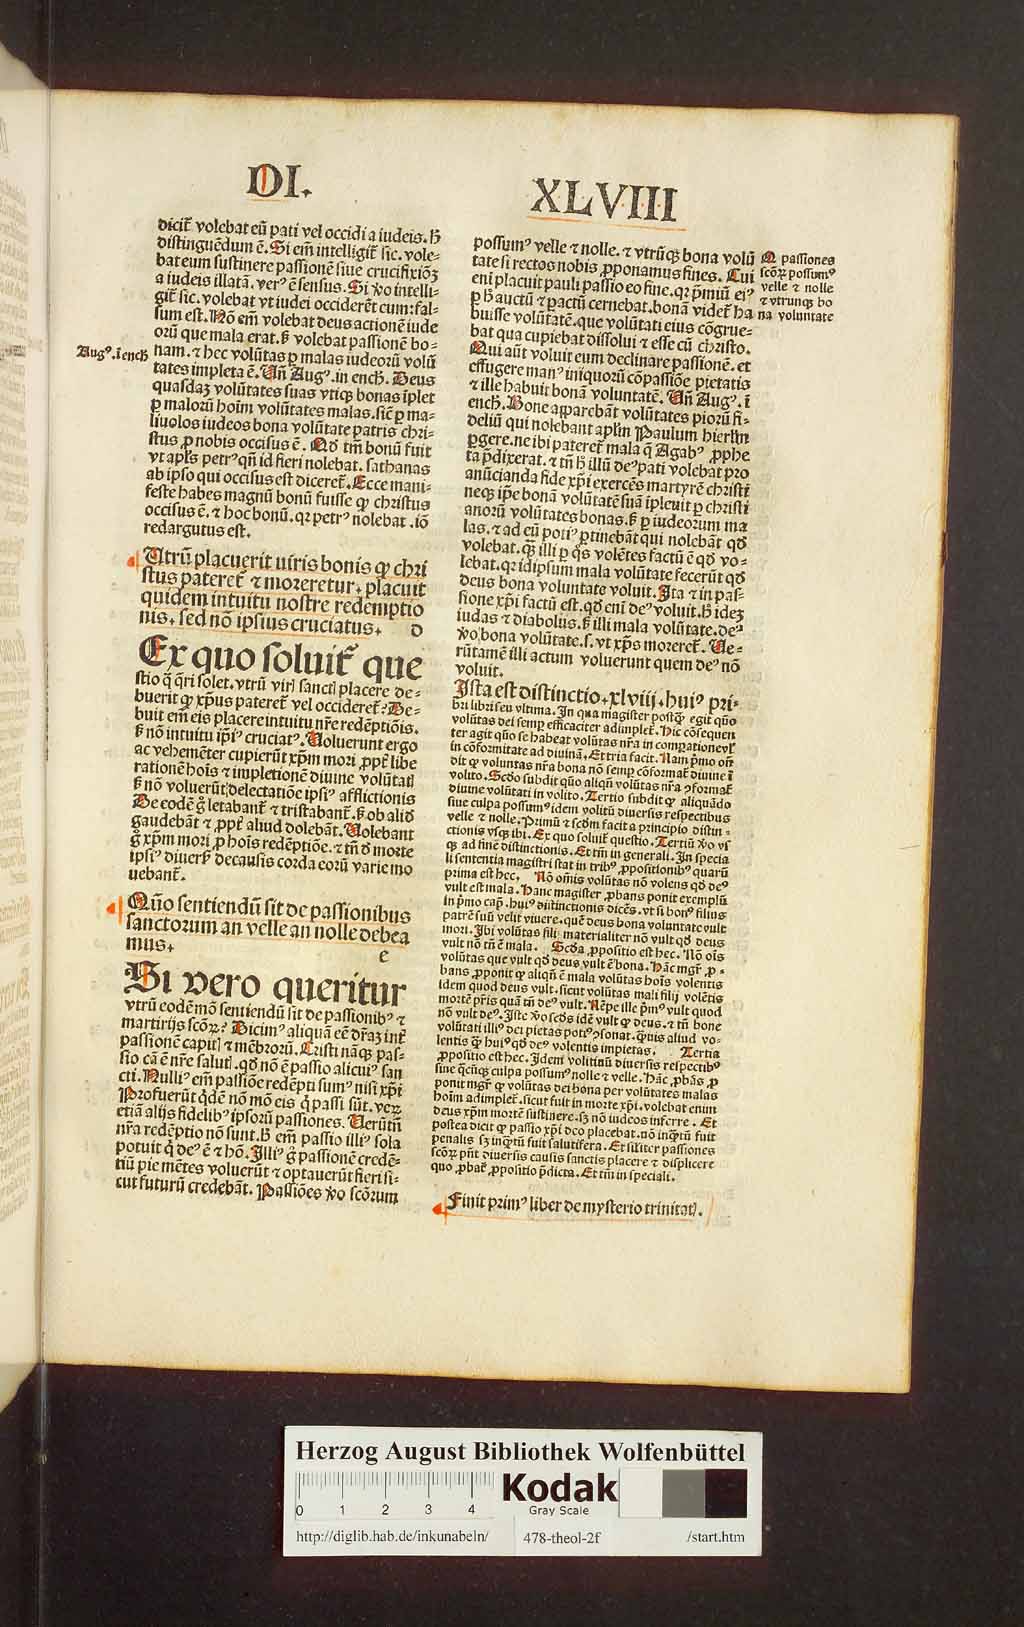 DI.
XLVIII
dicit᷑ volebat eũ pati vel occidi a iudeis. H̄
distinguẽdum ẽ. Si em̃ intelligit᷑ sic. vole⸗
bat eum sustinere passionẽ siue crucifixiõꝫ
a iudeis illatã. verꝰ ẽ sensus. Si ꝟo intelli⸗
git᷑ sic. volebat vt iudei occiderẽt eum: fal⸗
sum est. Nõ em̃ volebat deus actionẽ iude
orũ que mala erat. sꝫ volebat passionẽ bo⸗
Augꝰ. ĩ ench̃
nam. ⁊ hec volũtas ꝑ malas iudeorũ volũ
tates impleta ẽ. Vñ Augꝰ. in ench̃. Deus
quasdaꝫ volũtates suas vtiqꝫ bonas ĩplet
ꝑ malorũ hoĩm volũtates malas. sic̃ ꝑ ma⸗
liuolos iudeos bona volũtate patris chri⸗
stus ꝓ nobis occisus ẽ. Qḋ tm̃ bonũ fuit
vt apl̃s petrꝰ qñ id fieri nolebat. sathanas
ab ipso qui occisus est diceret᷑. Ecce mani⸗
feste habes magnũ bonũ fuisse ꝙ christus
occisus ẽ. ⁊ hoc bonũ. qꝛ petrꝰ nolebat. iõ
redargutus est.
Vtrũ placuerit uiris bonis ꝙ chri
stus pateret᷑ ⁊ moreretur. placuit
quidem intuitu nostre redemptio
nis. sed nõ ipsius cruciatus. D
Ex quo soluit᷑ que
stio q̃ q̃ri solet. vtrũ viri sancti placere de⸗
buerit ꝙ xp̃us pateret᷑ vel occideret᷑: De⸗
buit em̃ eis placere intuitu nr̃e redẽptiõis.
sꝫ nõ intuitu ip̃iꝰ cruciatꝰ. Voluerunt ergo
ac vehemẽter cupierũt xp̃m mori ꝓpt᷑ libe
rationẽ hoĩs ⁊ impletionẽ diuine volũtatis
sꝫ nõ voluerũt delectatiõe ipsiꝰ afflictionis
De eodẽ g̊ letabant᷑ ⁊ tristabant᷑. sꝫ ob aliḋ
gaudebãt ⁊ ꝓpt᷑ aliud dolebãt. Volebant
g̊ xp̃m mori ꝓ hoĩs redẽptiõe. ⁊ tm̃ ḋ morte
ipsiꝰ diuersis decausis corda eorũ varie mo
uebant᷑.
Quõ sentiendũ sit de passionibus
sanctorum an velle an nolle debea
mus.
e
Si vero queritur
vtrũ eodẽ mõ sentiendũ sit de passionibꝰ ⁊
martirijs scõꝝ? Dicimꝰ aliquã eẽ dr̃aꝫ int᷑
passionẽ capitis ⁊ mẽbrorũ. Cristi nãqꝫ pas⸗
sio cã ẽ nr̃e salutis. qḋ nõ ẽ passio alicuiꝰ san
cti. Nulliꝰ em̃ passiõe redẽpti sumꝰ nisi xp̃i
Profuerũt q̃dẽ nõ mõ eis q̃ passi sũt. veꝝ
etiã alijs fidelibꝰ ipsorũ passiones. Verũtñ
nr̃a redẽptio nõ sunt. h̄ em̃ passio illiꝰ sola
potuit q̃ deꝰ ẽ ⁊ hõ. Illiꝰ g̊ passionẽ credẽ⸗
tiũ pie mẽtes voluerũt ⁊ optauerũt fieri si⸗
cut futurũ credebãt. Passiões ꝟo scõrum
possumꝰ velle ⁊ nolle. ⁊ vtrũqꝫ bona volũ
tate si rectos nobis ꝓponamus fines. Cui
eni placuit pauli passio eo fine. qꝛ p̃miũ eiꝰ
ꝑ h̄ auctũ ⁊ ꝑactũ cernebat. bonã videt᷑ ha
buisse volũtatẽ. que volũtati eius cõgrue⸗
bat qua cupiebat dissolui ⁊ esse cũ christo.
Qui aũt voluit eum declinare passionẽ. et
effugere manꝰ iniquorũ cõpassiõe pietatis
⁊ ille habuit bonã voluntatẽ. Vñ Augꝰ. ĩ
ench̃. Bone apparebãt volũtates piorũ fi⸗
deliũ qui nolebant apl̃m Paulum hierl̃m
ꝑgere. ne ibi pateret᷑ mala q̃ Agabꝰ ꝓphe
ta p̃dixerat. ⁊ tm̃ h̄ illũ deꝰ pati volebat pro
anũcianda fide xp̃i exercẽs martyrẽ christi
neqꝫ ip̃e bonã volũtatẽ suã ĩpleuit ꝑ christi
anorũ volũtates bonas. sꝫ ꝑ iudeorum ma
las. ⁊ ad eũ potiꝰ ꝑtinebãt qui nolebãt qḋ
volebat. qꝫ illi ꝑ q̃s volẽtes factũ ẽ qḋ vo⸗
lebat. qꝛ idipsum mala volũtate fecerũt qḋ
deus bona voluntate voluit. Ita ⁊ in pas⸗
sione xp̃i factũ est. qḋ eni deꝰ voluit. h̄ ideꝫ
iudas ⁊ diabolus. sꝫ illi mala volũtate. deꝰ
ꝟo bona volũtate. s. vt xp̃s moreret᷑. Ve⸗
rũtamẽ illi actum voluerunt quem deꝰ nõ
voluit.
Q passiones
scõꝝ possumꝰ
velle ⁊ nolle
⁊ vtrunqꝫ bo
na voluntate
Ista est distinctio. xlviij. huiꝰ pri⸗
bri libri seu vltima. In qua magister postqꝫ egit quõ
volũtas dei semꝑ efficaciter adimplet᷑. Hic cõsequen
ter agit quõ se habeat volũtas nr̃a in comparationevl᷑
in cõformitate ad diuinã. Et tria facit. Nam p̃mo oñ
dit ꝙ voluntas nr̃a bona nõ semꝑ cõformat᷑ diuine ĩ
volito. Scḋo subdit quõ aliqñ volũtas nr̃a ꝯformat᷑
diuine volũtati in volito. Tertio subdit ꝙ aliquãdo
siue culpa possumꝰ idem volitũ diuersis respectibus
velle ⁊ nolle. Primũ ⁊ scḋm facit a principio distin⸗
ctionis vsqꝫ ibi. Ex quo soluit᷑ questio. Tertiũ ꝟo vs
qꝫ ad finẽ distinctionis. Et tm̃ in generali. In specia
li sententia magistri stat in tribꝰ ꝓpositionibꝰ quarũ
prima est hec. Nõ om̃is volũtas nõ volens qḋ deꝰ
vult est mala. Hanc magister ꝓbans ponit exemplũ
in p̃mo cap̃. huiꝰ distinctionis dicẽs. vt si bonꝰ filius
patrẽ suũ velit viuere. quẽ deus bona voluntate vult
mori. Ibi volũtas fili materialiter nõ vult qḋ deus
vult nõ tñ ẽ mala. Scḋa ꝓpositio est hec. Nõ oĩs
volũtas que vult qḋ deus vult ẽ bona. Hãc mgr̃ ꝓ⸗
bans ꝓponit ꝙ aliqñ ẽ mala volũtas hoĩs volentis
idem quod deus vult. sicut volũtas mali filij volẽtis
mortẽ pr̃is quã tñ deꝰ vult. Nẽpe ille p̃mꝰ vult quod
nõ vult deꝰ. Iste ꝟo scḋs idẽ vult ꝙ deus. ⁊ tñ bone
volũtati illiꝰ dei pietas potiꝰ ꝯsonat. q̃uis aliud vo⸗
lentis qꝫ huiꝰ qḋ deꝰ volentis impietas. Tertia
ꝓpositio est hec. Idem volitiuũ diuersis respectibꝰ
siue q̃cũqꝫ culpa possumꝰ nolle ⁊ velle. Hãc ꝓbãs ꝓ
ponit mgr̃ ꝙ volũtas dei bona per volũtates malas
hoĩm adimplet᷑. sicut fuit in morte xp̃i. volebat enim
deus xp̃m mortẽ sustinere. sꝫ nõ iudeos inferre. Et
postea dicit ꝙ passio xp̃i deo placebat. nõ inq̃tũ fuit
penalis sꝫ inq̃tũ fuit salutifera. Et sil̃iter passiones
scõꝝ pñt diuersis causis sanctis placere ⁊ displicere
quo ꝓbat᷑ ꝓpositio p̃dicta. Et tm̃ in speciali.
Finit primꝰ liber de mysterio trinitatis.
Herzog August Bibliothek Wolfenbüttel
0 1 2 3 4
Kodak
Gray Scale
http://diglib.hab.de/inkunabeln/ 478-theol-2f /start.htm